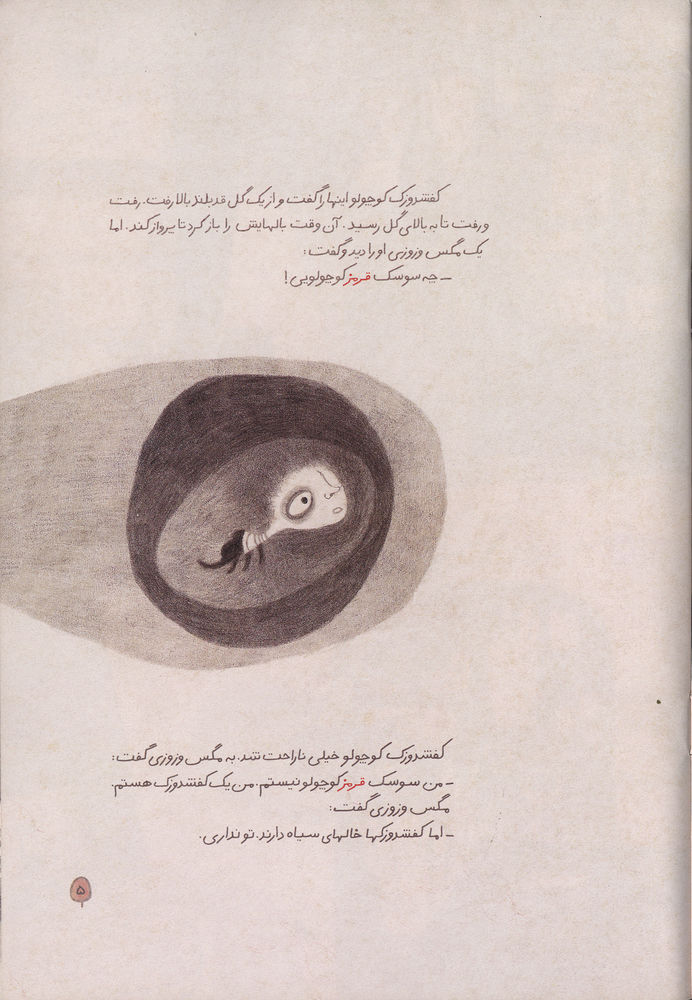 کفشدوزک کوچولو اینها را گفت و از یک گل قدبلند بالا رفت. رفت
و رفت تا به بالای گل رسید. آن وقت بالهایش را باز کرد تا پرواز کند. اما
یک مگس وزوزی او را دید و گفت:
ـ چه سوسک قرمز کوچولویی!
کفشدوزک کوچولو خیلی ناراحت شد. به مگس وزوزی گفت:
ـ من سوسک قرمز کوچولو نیستم. من یک کفشدوزک هستم.
مگس وزوزی گفت:
ـ اما کفشدوزکها خالهای سیاه دارند. تو نداری.
۵